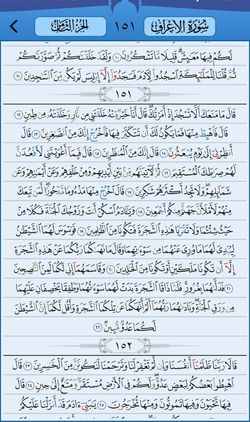 سورة الأعراف ١٥١ الجزء الثامن
لَكُمْ فِيهَا مَعَٰيِشَ قَلِيلًا مَّا تَشْكُرُونَ ١٠ وَلَقَدْ خَلَقْنَٰكُمْ ثُمَّ صَوَّرْنَٰكُمْ
ثُمَّ قُلْنَا لِلْمَلَٰٓئِكَةِ ٱسْجُدُوا۟ لِءَادَمَ فَسَجَدُوٓا۟ إِلَّآ إِبْلِيسَ لَمْ يَكُن مِّنَ ٱلسَّٰجِدِينَ ١١
١٥١
قَالَ مَا مَنَعَكَ أَلَّا تَسْجُدَ إِذْ أَمَرْتُكَ قَالَ أَنَا۠ خَيْرٌ مِّنْهُ خَلَقْتَنِى مِن نَّارٍ وَخَلَقْتَهُۥ مِن طِينٍ ١٢
قَالَ فَٱهْبِطْ مِنْهَا فَمَا يَكُونُ لَكَ أَن تَتَكَبَّرَ فِيهَا فَٱخْرُجْ إِنَّكَ مِنَ ٱلصَّٰغِرِينَ ١٣ قَالَ
أَنظِرْنِىٓ إِلَىٰ يَوْمِ يُبْعَثُونَ ١٤ قَالَ إِنَّكَ مِنَ ٱلْمُنظَرِينَ ١٥ قَالَ فَبِمَآ أَغْوَيْتَنِى لَأَقْعُدَنَّ
لَهُمْ صِرَٰطَكَ ٱلْمُسْتَقِيمَ ١٦ ثُمَّ لَءَاتِيَنَّهُم مِّنۢ بَيْنِ أَيْدِيهِمْ وَمِنْ خَلْفِهِمْ وَعَنْ أَيْمَٰنِهِمْ وَعَن
شَمَآئِلِهِمْ وَلَا تَجِدُ أَكْثَرَهُمْ شَٰكِرِينَ ١٧ قَالَ ٱخْرُجْ مِنْهَا مَذْءُومًا مَّدْحُورًا لَّمَن تَبِعَكَ
مِنْهُمْ لَأَمْلَأَنَّ جَهَنَّمَ مِنكُمْ أَجْمَعِينَ ١٨ وَيَٰٓـَٔادَمُ ٱسْكُنْ أَنتَ وَزَوْجُكَ ٱلْجَنَّةَ فَكُلَا مِنْ
حَيْثُ شِئْتُمَا وَلَا تَقْرَبَا هَٰذِهِ ٱلشَّجَرَةَ فَتَكُونَا مِنَ ٱلظَّٰلِمِينَ ١٩ فَوَسْوَسَ لَهُمَا ٱلشَّيْطَٰنُ
لِيُبْدِىَ لَهُمَا مَا وُۥرِىَ عَنْهُمَا مِن سَوْءَٰتِهِمَا وَقَالَ مَا نَهَىٰكُمَا رَبُّكُمَا عَنْ هَٰذِهِ ٱلشَّجَرَةِ
إِلَّآ أَن تَكُونَا مَلَكَيْنِ أَوْ تَكُونَا مِنَ ٱلْخَٰلِدِينَ ٢٠ وَقَاسَمَهُمَآ إِنِّى لَكُمَا لَمِنَ ٱلنَّٰصِحِينَ
٢١ فَدَلَّىٰهُمَا بِغُرُورٍ فَلَمَّا ذَاقَا ٱلشَّجَرَةَ بَدَتْ لَهُمَا سَوْءَٰتُهُمَا وَطَفِقَا يَخْصِفَانِ عَلَيْهِمَا
مِن وَرَقِ ٱلْجَنَّةِ وَنَادَىٰهُمَا رَبُّهُمَآ أَلَمْ أَنْهَكُمَا عَن تِلْكُمَا ٱلشَّجَرَةِ وَأَقُل لَّكُمَآ إِنَّ ٱلشَّيْطَٰنَ
لَكُمَا عَدُوٌّ مُّبِينٌ ٢٢
١٥٢
قَالَا رَبَّنَا ظَلَمْنَآ أَنفُسَنَا وَإِن لَّمْ تَغْفِرْ لَنَا وَتَرْحَمْنَا لَنَكُونَنَّ مِنَ ٱلْخَٰسِرِينَ ٢٣ قَالَ
ٱهْبِطُوا۟ بَعْضُكُمْ لِبَعْضٍ عَدُوٌّ وَلَكُمْ فِى ٱلْأَرْضِ مُسْتَقَرٌّ وَمَتَٰعٌ إِلَىٰ حِينٍ ٢٤ قَالَ
فِيهَا تَحْيَوْنَ وَفِيهَا تَمُوتُونَ وَمِنْهَا تُخْرَجُونَ ٢٥ يَٰبَنِىٓ ءَادَمَ قَدْ أَنزَلْنَا عَلَيْكُمْ